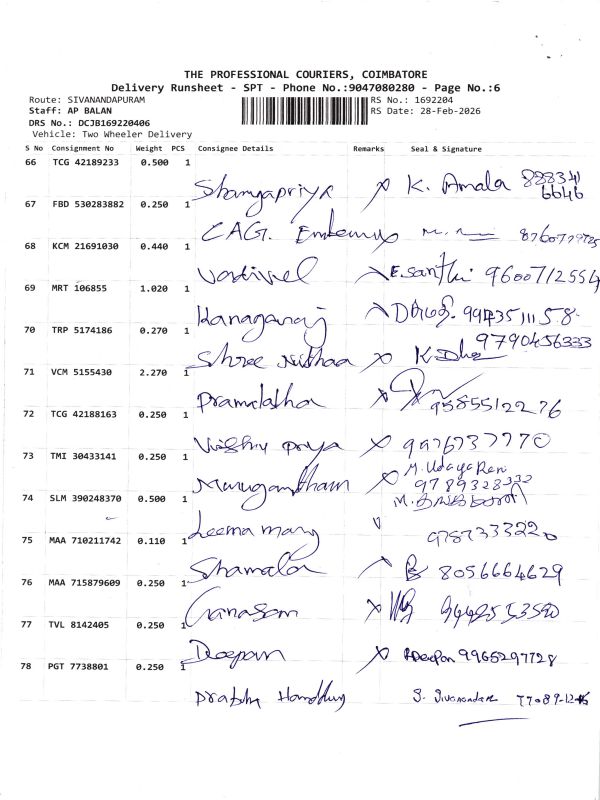 THE PROFESSIONAL COURIERS, COIMBATORE
Delivery Runsheet - SPT - Phone No.:9047080280 - Page No.:6
Route: SIVANANDAPURAM
RS No.: 1692204
Staff: AP BALAN
RS Date: 28-Feb-2026
DRS No.: DCJB169220406
Vehicle: Two Wheeler Delivery
S No Consignment No Weight PCS Consignee Details Remarks Seal & Signature
66 TCG 42189233 0.500 1
Shanyapriya K. Amala 888341 6646
67 FBD 530283882 0.250 1
CAG.
68 KCM 21691030 0.440 1
Vadivel E. Santhi 9600712554
69 MRT 106855 1.020 1
Kanagaraj
70 TRP 5174186 0.270 1
9790456333
Shree
71 VCM 5155430 2.270 1
Pramalatha 9585512276
72 TCG 42188163 0.250 1
Vishnu priya 9976737770
73 TMI 30433141 0.250 1
M. Udaya Rani
Murugantham 9789328332
74 SLM 390248370 0.500 1
Leema mary
75 MAA 710211742 0.110 1
Shamala 8056664629
76 MAA 715879609 0.250 1
77 TVL 8142405 0.250 1
Deepan Deepan 9965297728
78 PGT 7738801 0.250 1
Prabhu